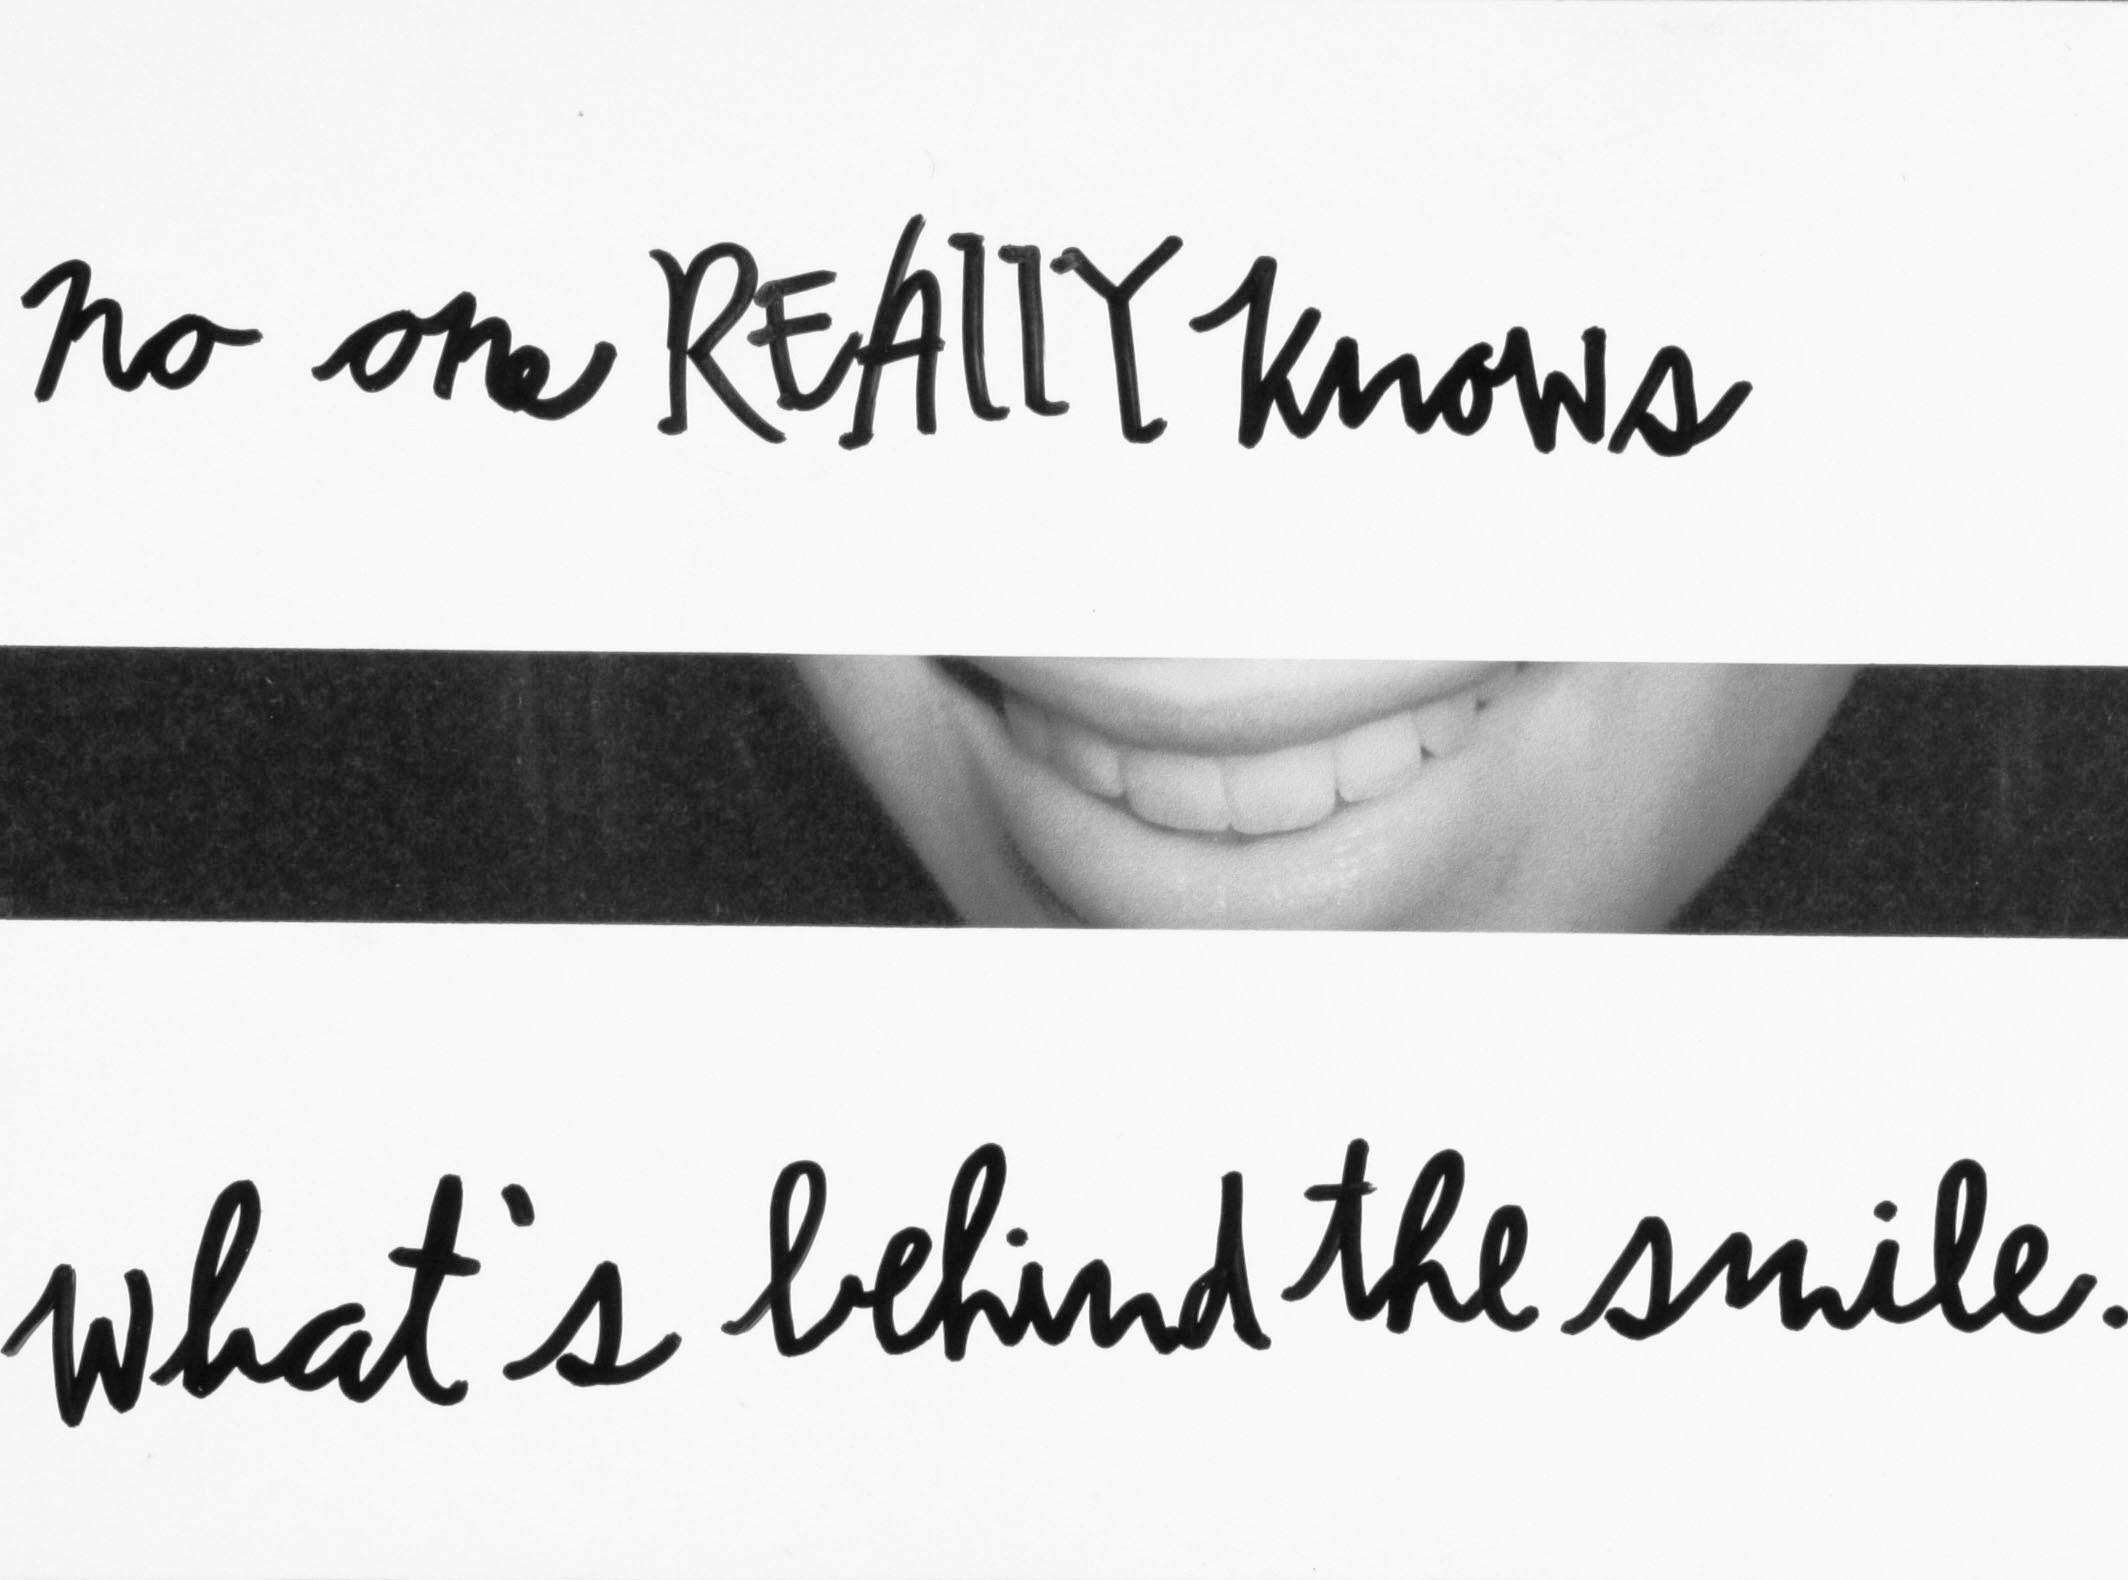 no one REAllY knows
what's behind the smile.